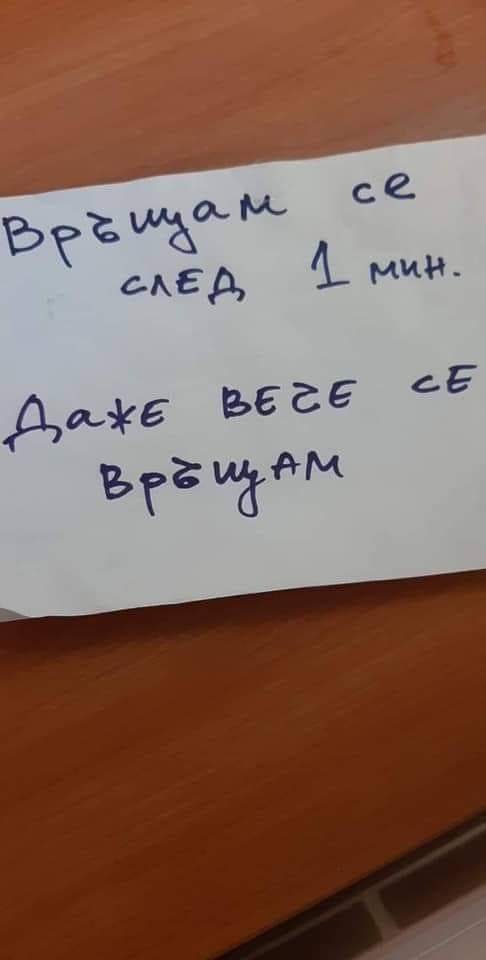 Връщам се
след 1 мин.
Даже вече се
връщам